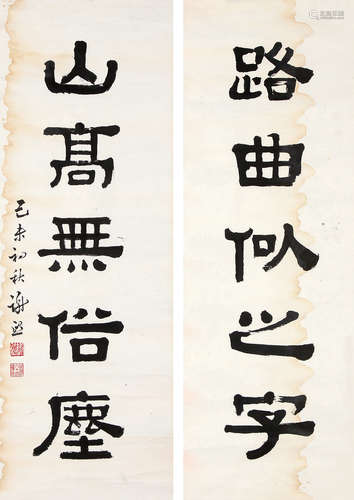 路曲似之字
山高無俗塵
己未初秋 謝照